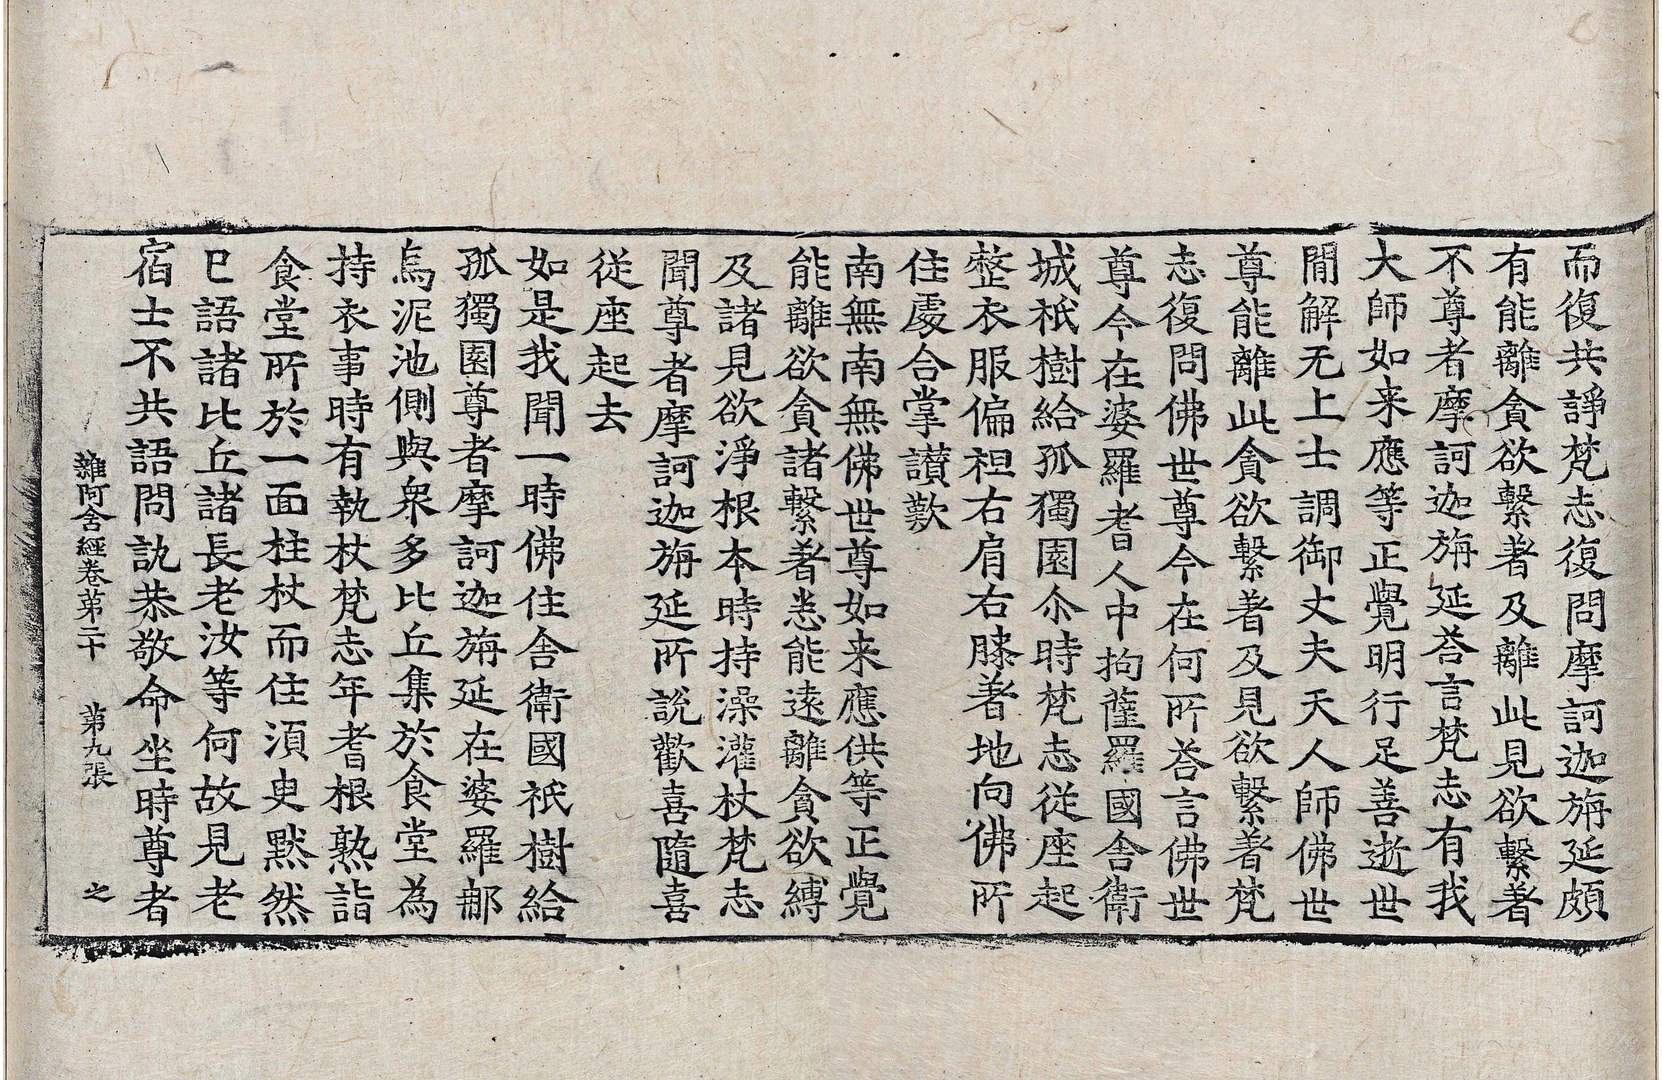 而復共諍梵志復問摩訶迦旃延頗
有能離貪欲繫著及離此見欲繫著
不尊者摩訶迦旃延荅言梵志有我
大師如来應等正覺明行足善逝世
閒解无上士調御丈夫天人師佛世
尊能離此貪欲繫著及見欲繫著梵
志復問佛世尊今在何所荅言佛世
尊今在婆羅耆人中拘薩羅國舍衛
城祇樹給孤獨園尒時梵志從座起
整衣服偏袒右肩右膝著地向佛所
住處合掌讃歎
南無南無佛世尊如来應供等正覺
能離欲貪諸繫著悉能遠離貪欲縛
及諸見欲淨根本時持澡灌杖梵志
聞尊者摩訶迦旃延所說歡喜隨喜
從座起去
如是我聞一時佛住舍衛國祇樹給
孤獨園尊者摩訶迦旃延在婆羅郍
烏泥池側與衆多比丘集於食堂為
持衣事時有執杖梵志年耆根熟詣
食堂所於一面柱杖而住須臾黙然
已語諸比丘諸長老汝等何故見老
宿士不共語問訊恭敬命坐時尊者
雜阿含經卷苐二十 苐九張 之